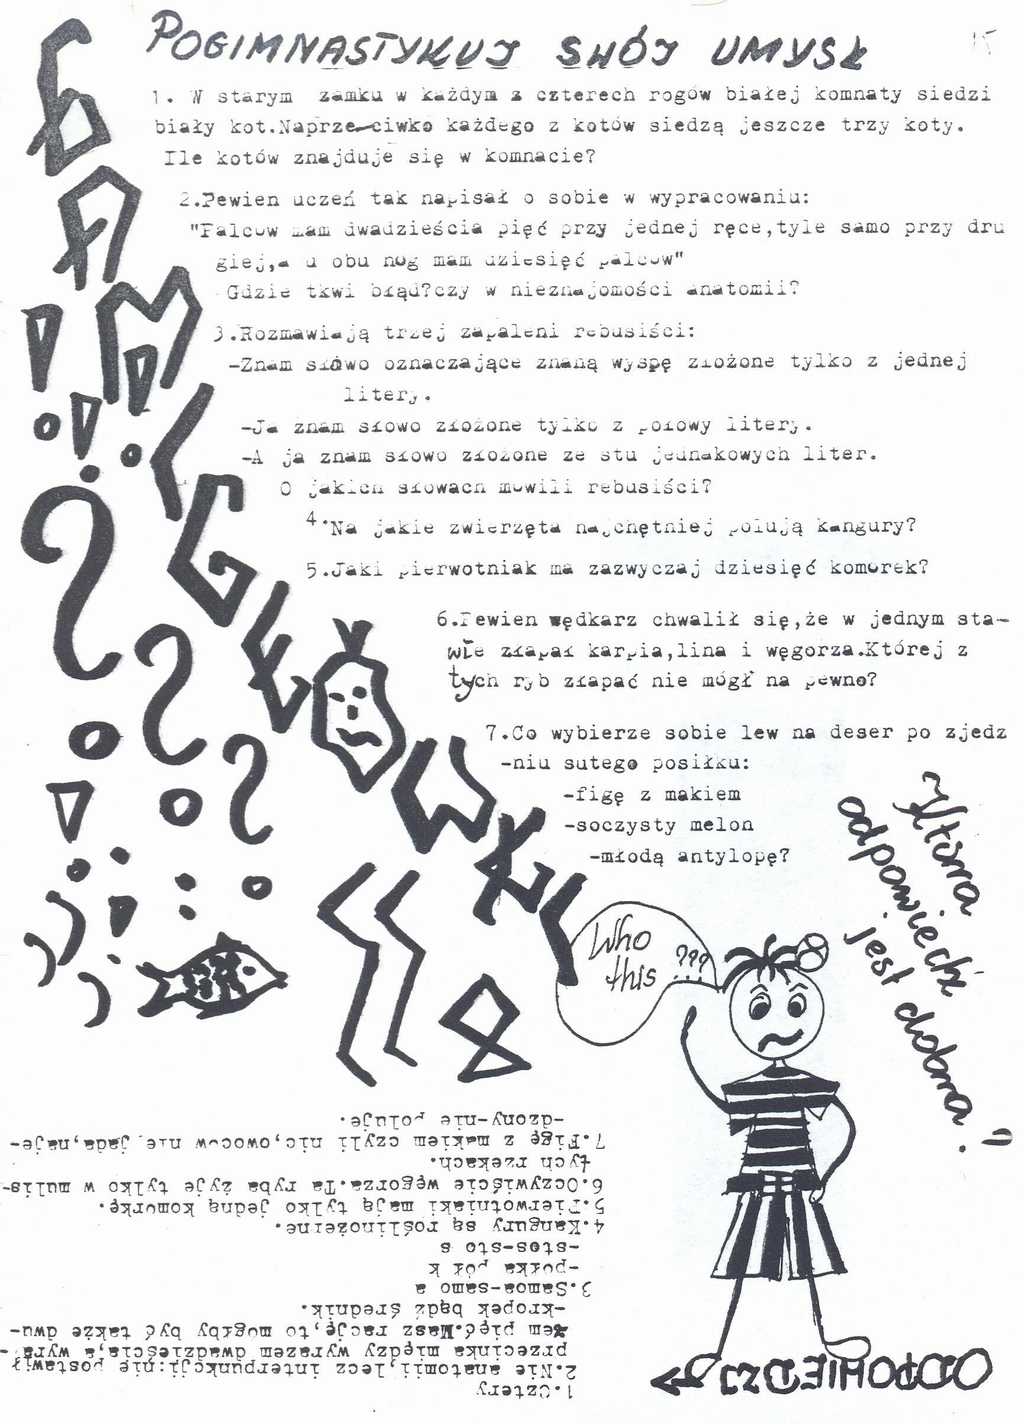 POGIMNASTYKUJ SWÓJ UMYSŁ
15
ŁAMIGŁÓWKI
1. W starym zamku w każdym z czterech rogów białej komnaty siedzi
biały kot.Naprzeciwko każdego z kotów siedzą jeszcze trzy koty.
Ile kotów znajduje się w komnacie?
2.Pewien uczeń tak napisał o sobie w wypracowaniu:
"Palców mam dwadzieścia pięć przy jednej ręce,tyle samo przy dru
giej,a u obu nóg mam dziesięć palców"
Gdzie tkwi błąd?czy w nieznajomości anatomii?
3.Rozmawiają trzej zapaleni rebusiści:
-Znam słowo oznaczające znaną wyspę złożone tylko z jednej
litery.
-Ja znam słowo złożone tylko z połowy litery.
-A ja znam słowo złożone ze stu jednakowych liter.
O jakich słowach mówili rebusiści?
4.Na jakie zwierzęta najchętniej polują kangury?
5.Jaki pierwotniak ma zazwyczaj dziesięć komórek?
6.Pewien wędkarz chwalił się,że w jednym sta-
wie złapał karpia,lina i węgorza.Której z
tych ryb złapać nie mógł na pewno?
7.Co wybierze sobie lew na deser po zjedz
-niu sutego posiłku:
-figę z makiem
-soczysty melon
-młodą antylopę?
~Która
odpowiedź
jest dobra?
Who
this ???
ODPOWIEDZI
1.Cztery
2.Nie anatomii,lecz interpunkcji:nie postawił
przecinka między wyrazem dwadzieścia,a wyra-
zem pięć.Masz rację,to mógłby być także dwu
-kropek bądź średnik.
3.Samoa-samo a
-półka pół k
-stos-sto s
4.Kangury są roślinożerne.
5.Pierwotniaki mają tylko jedną komórkę.
6.Oczywiście węgorza.Ta ryba żyje tylko w mulis-
tych rzekach.
7.Figę z makiem czyli nic,owoców nie jada,naje-
-dzony-nie poluje.